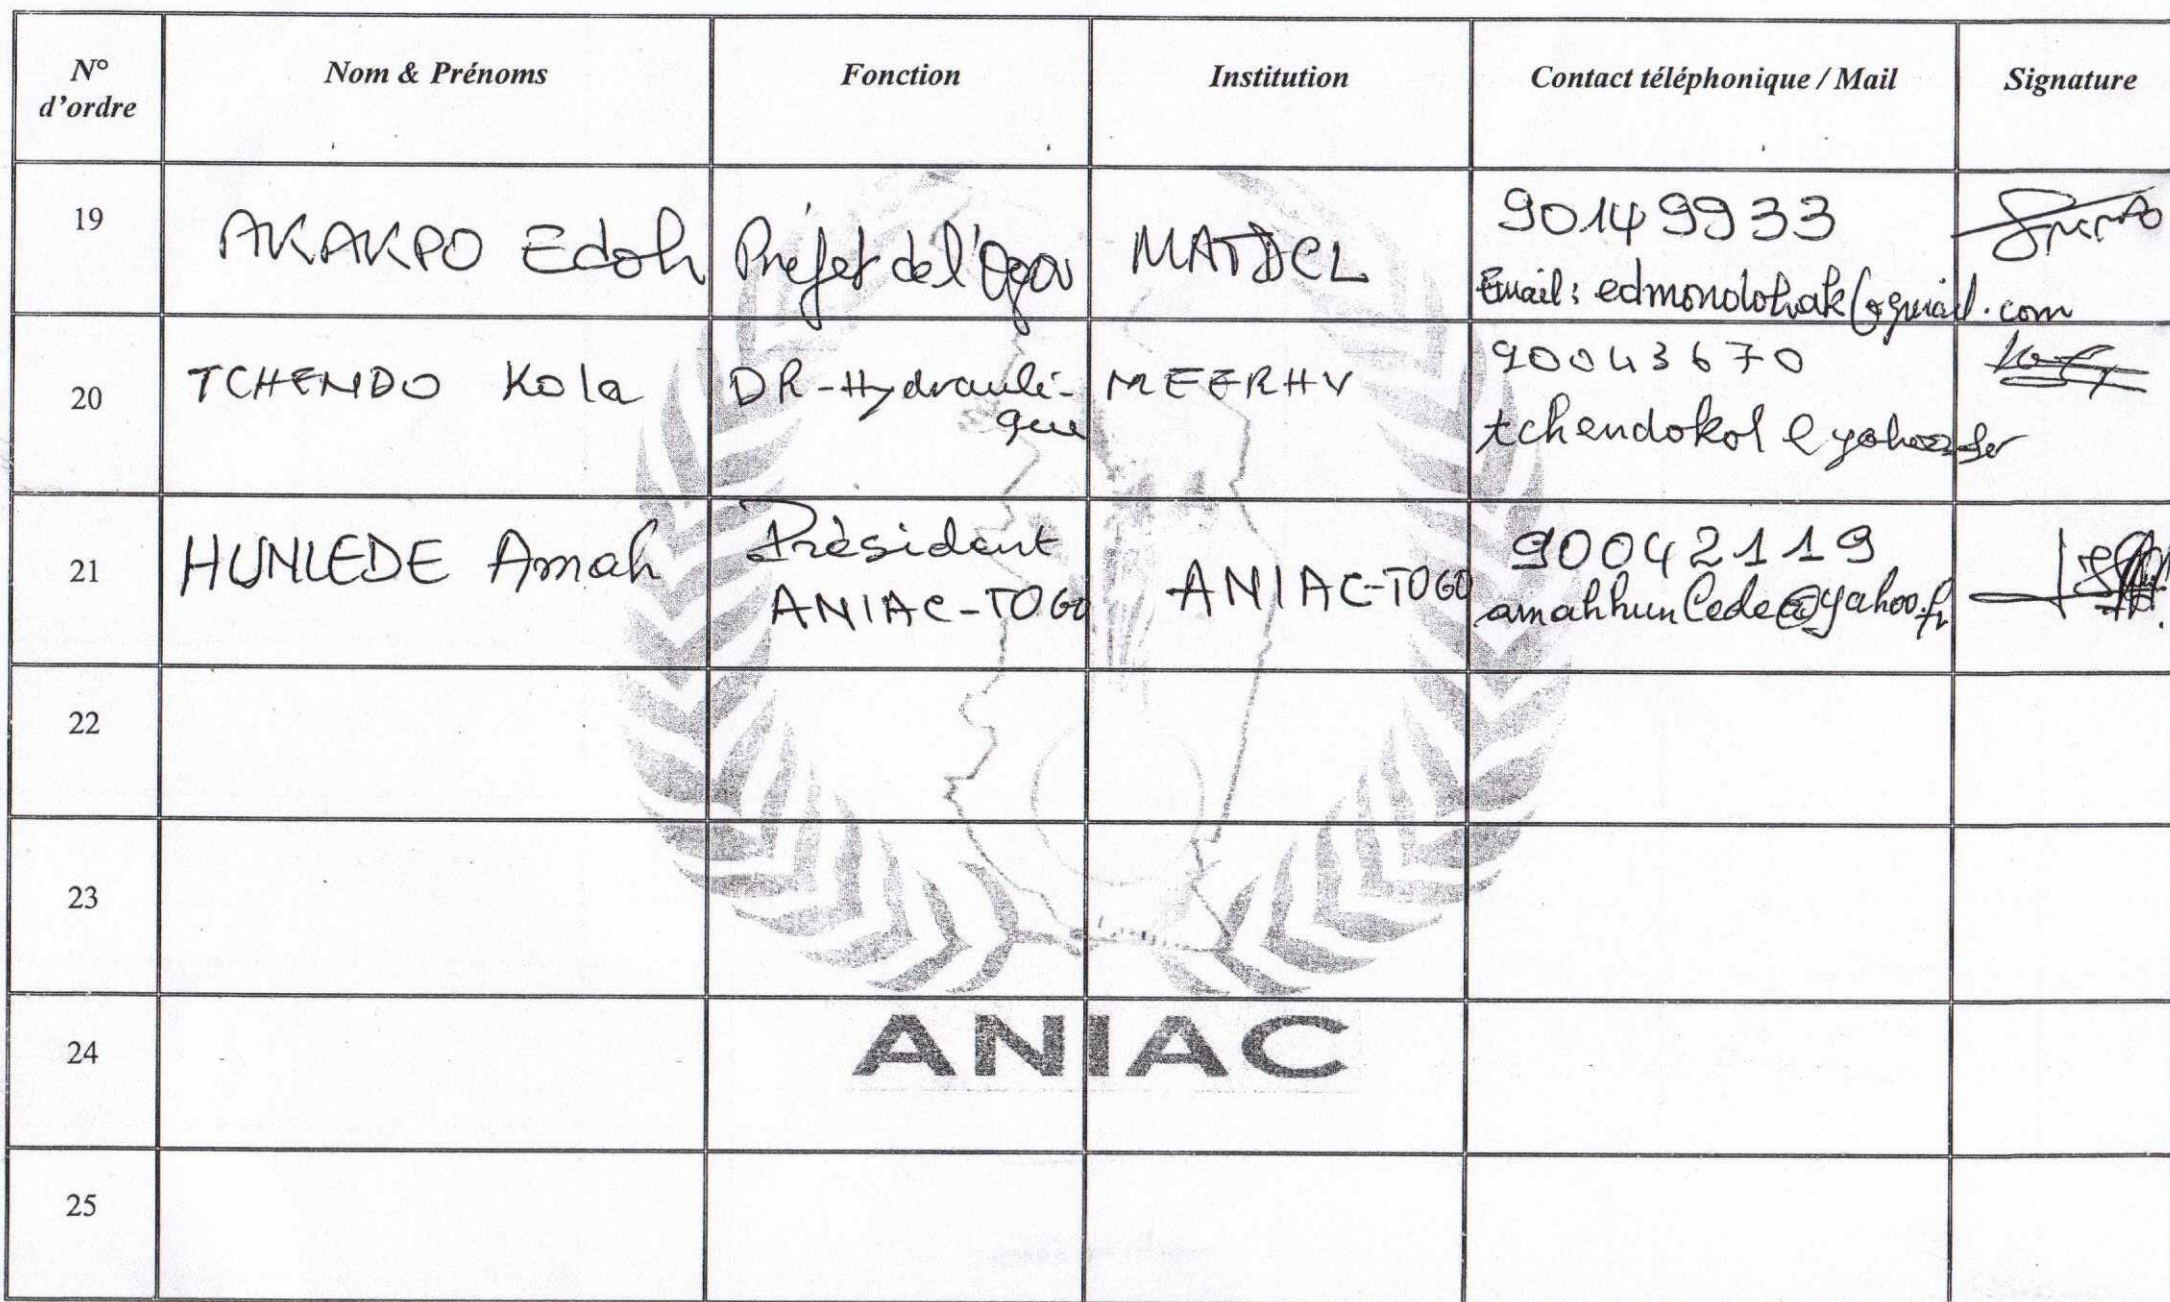 N° d'ordre Nom & Prénoms Fonction Institution Contact téléphonique / Mail Signature
19 AKAKPO Edoh Préfet de l'Ogou MATDCL 90149933
Email: edmondohak@gmail.com
20 TCHENDO Kola DR-Hydrauli- MEERHV 90043670
que tchendokol@yahoo.fr
21 HUNLEDE Amah Président ANIAC-TOGO 90042119
ANIAC-TOGO amahhunlede@yahoo.fr
22
23
24
ANIAC
25